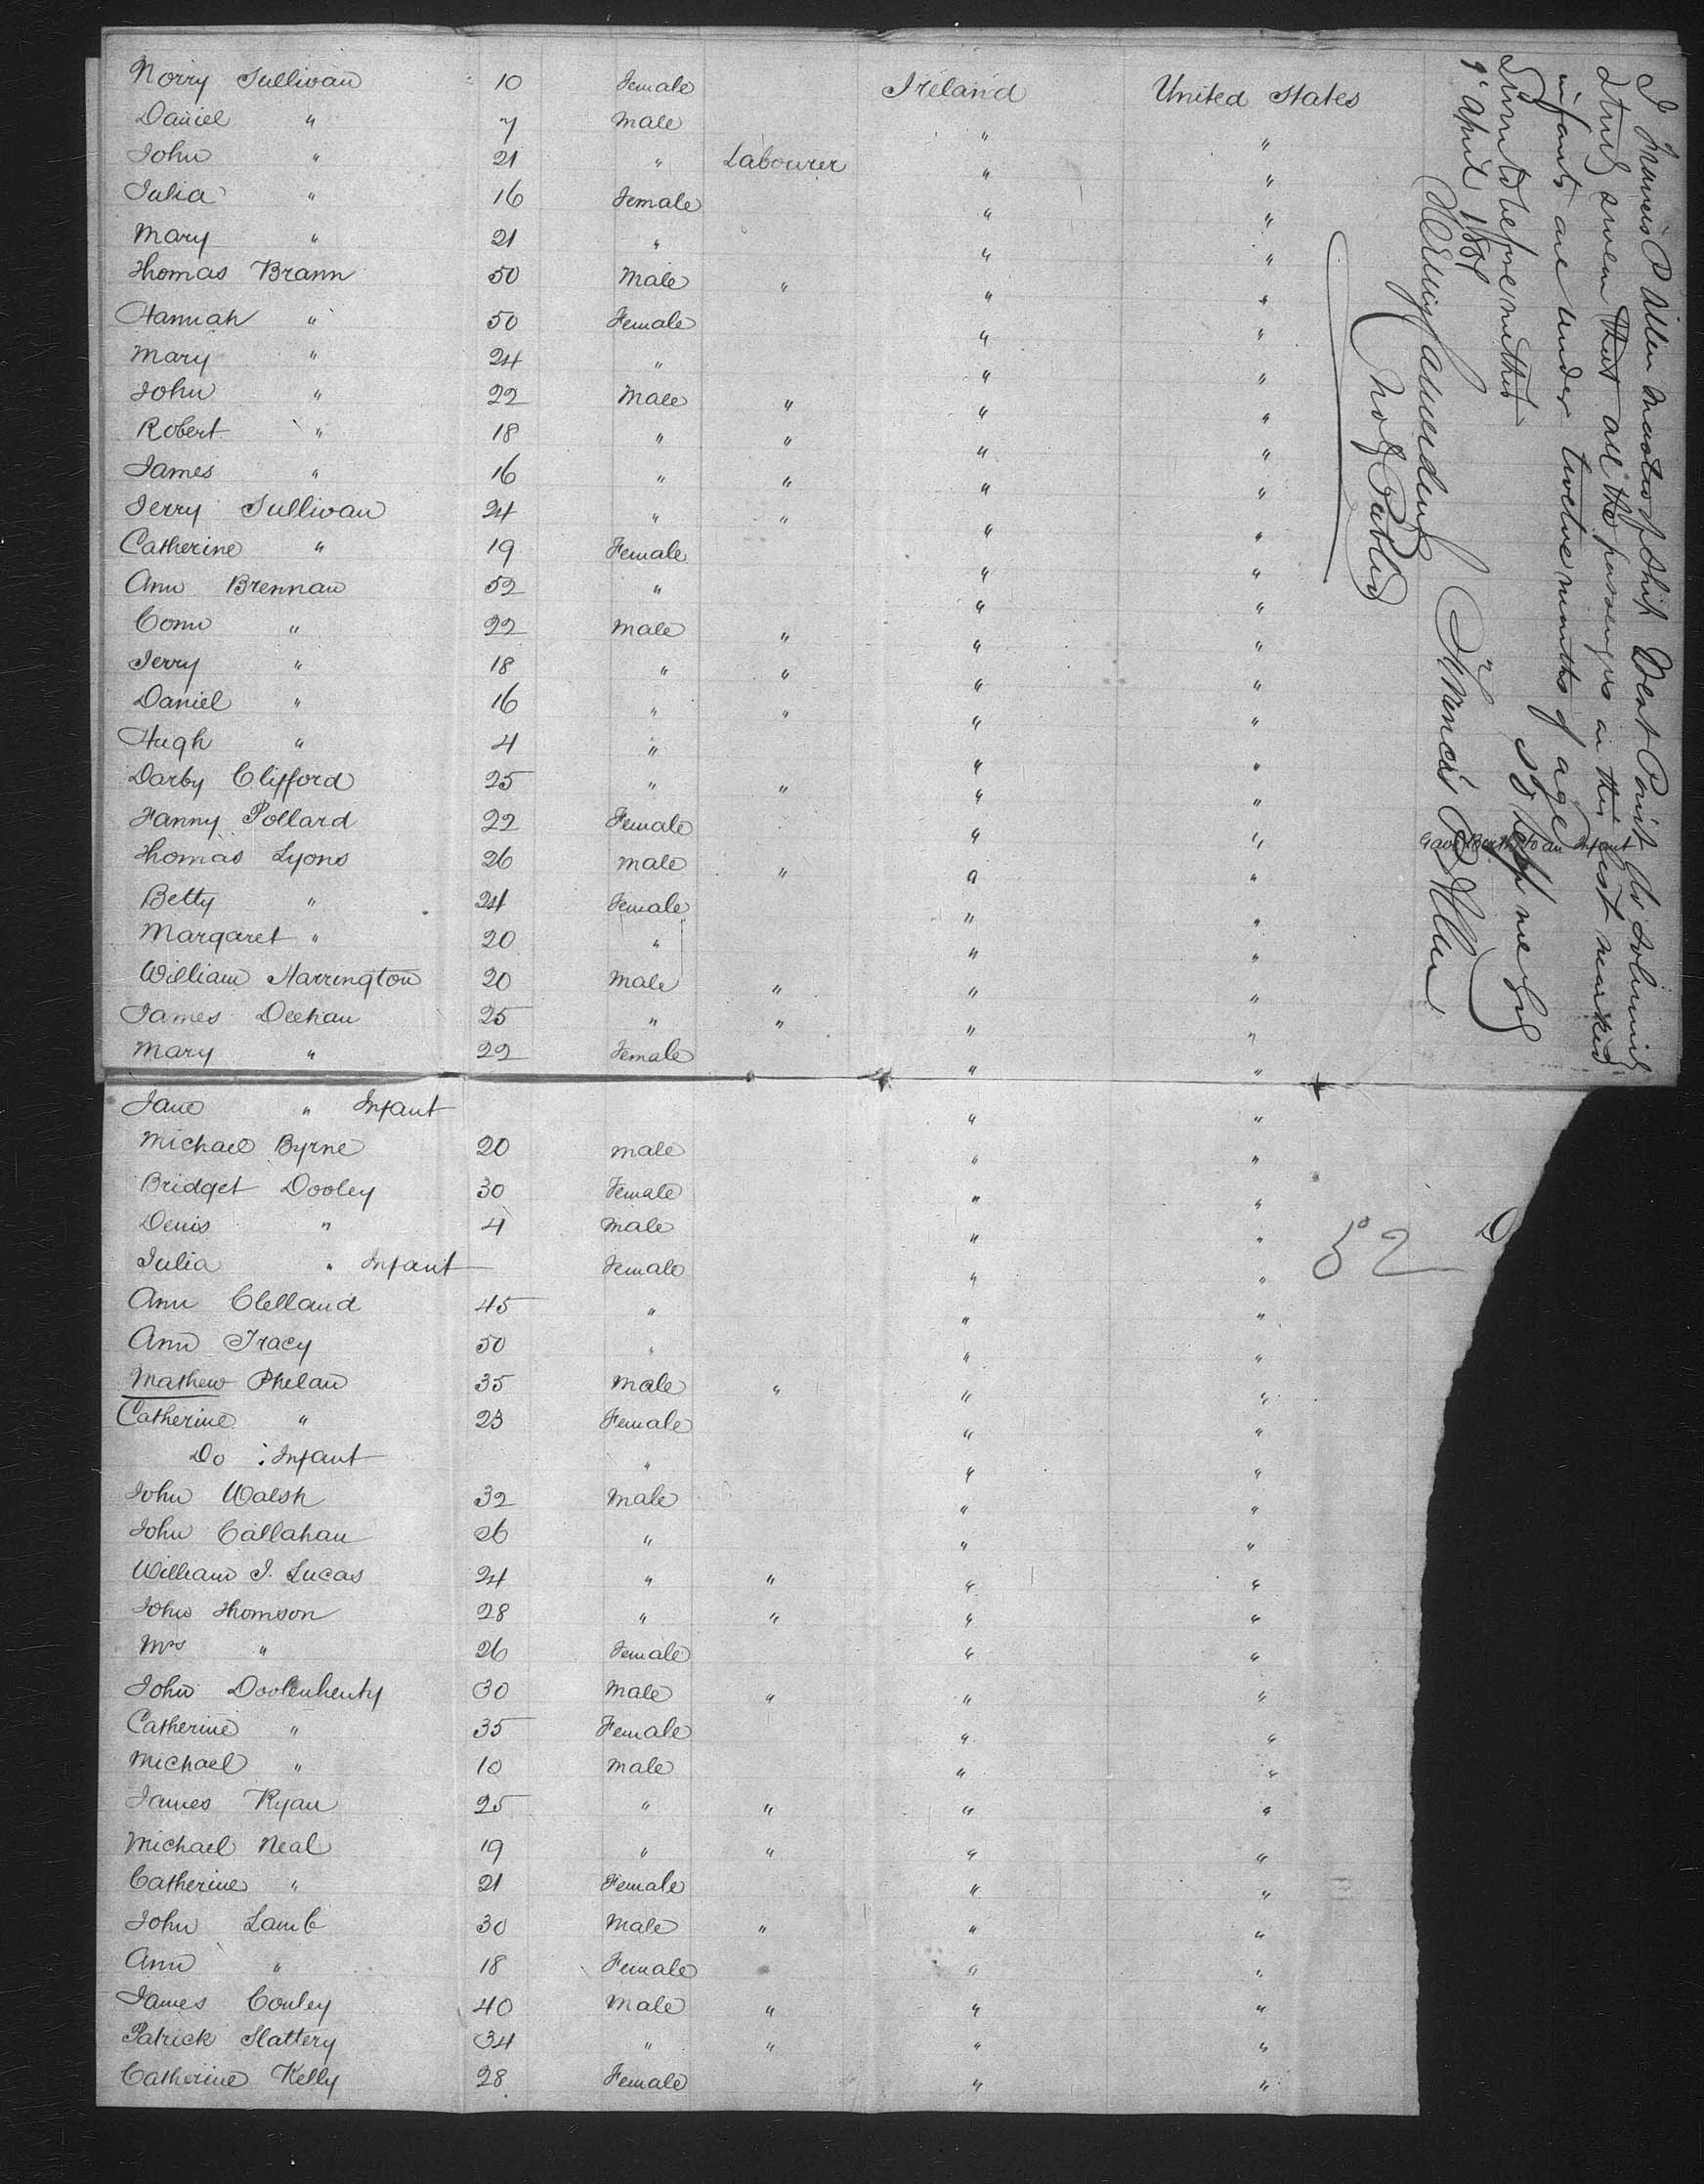 Norry Sullivan 10 Female Ireland United States
Daniel " 7 Male " "
John " 21 " Labourer " "
Julia " 16 Female " "
Mary " 21 " " "
Thomas Brann 50 Male " " "
Hannah " 50 Female " "
Mary " 24 " " "
John " 22 Male " " "
Robert " 18 " " " "
James " 16 " " " "
Jerry Sullivan 24 " " " "
Catherine " 19 Female " "
Ann Brennan 52 " " "
Conn " 22 Male " " "
Jerry " 18 " " " "
Daniel " 16 " " " "
Hugh " 4 " " "
Darby Clifford 25 " " " "
Fanny Pollard 22 Female " " Gave Birth to an Infant
Thomas Lyons 26 Male " " "
Betty " 24 Female " "
Margaret " 20 " " "
William Harrington 20 Male " " "
James Deehan 25 " " " "
Mary " 22 Female " "
Jane " Infant " "
Michael Byrne 20 Male " "
Bridget Dooley 30 Female " "
Denis " 4 Male " "
Julia " Infant Female " "
Ann Clelland 45 " " "
Ann Tracy 50 " " "
Mathew Phelan 35 Male " " "
Catherine " 23 Female " "
Do : Infant " " "
John Walsh 32 Male " "
John Callahan 26 " " "
William J. Lucas 24 " " " "
John Thomson 28 " " " "
Mrs " 26 Female " "
John Doolenhenty 30 Male " " "
Catherine " 35 Female " "
Michael " 10 Male " "
James Ryan 25 " " " "
Michael Neal 19 " " " "
Catherine " 21 Female " "
John Lamb 30 Male " " "
Ann " 18 Female " "
James Conley 40 Male " " "
Patrick Slattery 34 " " " "
Catherine Kelly 28 Female " "
I Francis P Allen Master of Ship West Point do solemnly
swear that all the passengers in this list marked
infants are under twelve months of age
So help me
Francis P Allen
Sworn to before me this
9 April
Not Public
52
D